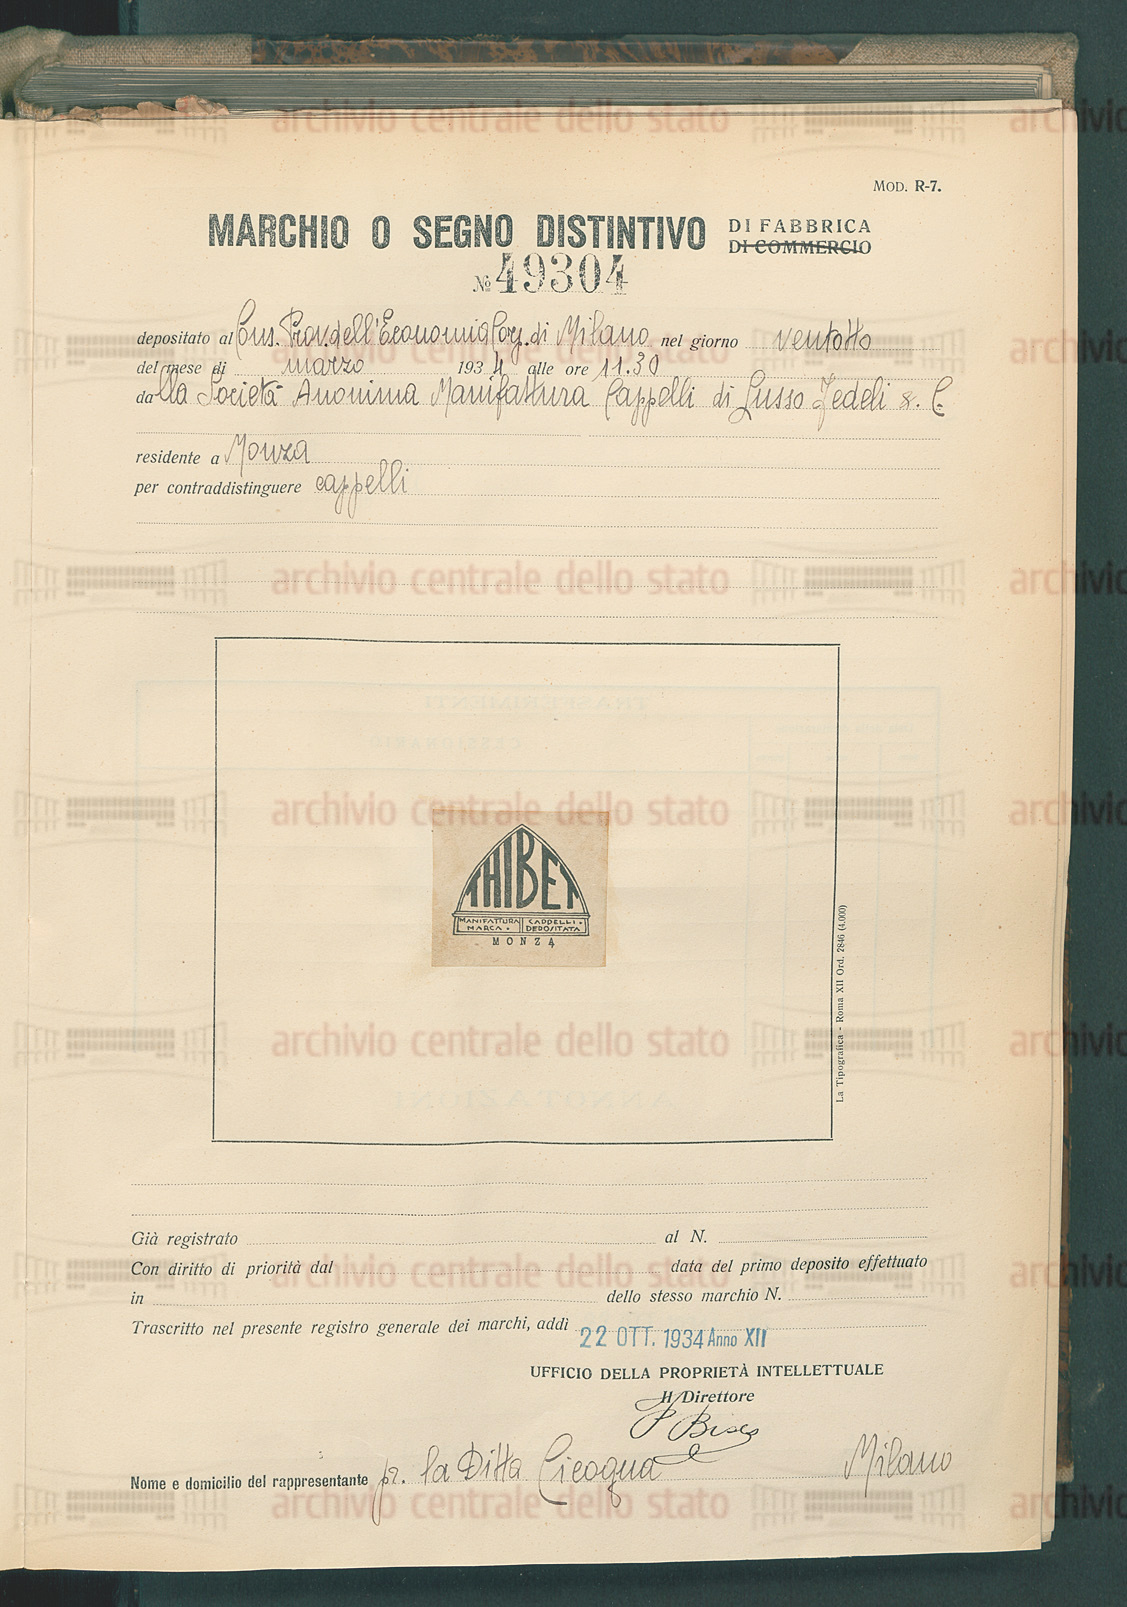 MOD. R-7.
MARCHIO O SEGNO DISTINTIVO DI FABBRICA
DI COMMERCIO
№ 49304
depositato al Cons. Prov. dell'Economia Corp. di Milano nel giorno ventotto
del mese di marzo 1934 alle ore 11.30
dalla Società Anonima Manifattura Cappelli di Lusso Fedeli & C.
residente a Monza
per contraddistinguere cappelli
THIBET
MANIFATTURA CAPPELLI
MARCA DEPOSITATA
MONZA
La Tipografica - Roma XII Ord. 2846 (4.000)
Già registrato al N.
Con diritto di priorità dal data del primo deposito effettuato
in dello stesso marchio N.
Trascritto nel presente registro generale dei marchi, addì 22 OTT. 1934 Anno XII
UFFICIO DELLA PROPRIETÀ INTELLETTUALE
Il Direttore
Nome e domicilio del rappresentante pr. la Ditta Cicogna Milano
archivio centrale dello stato